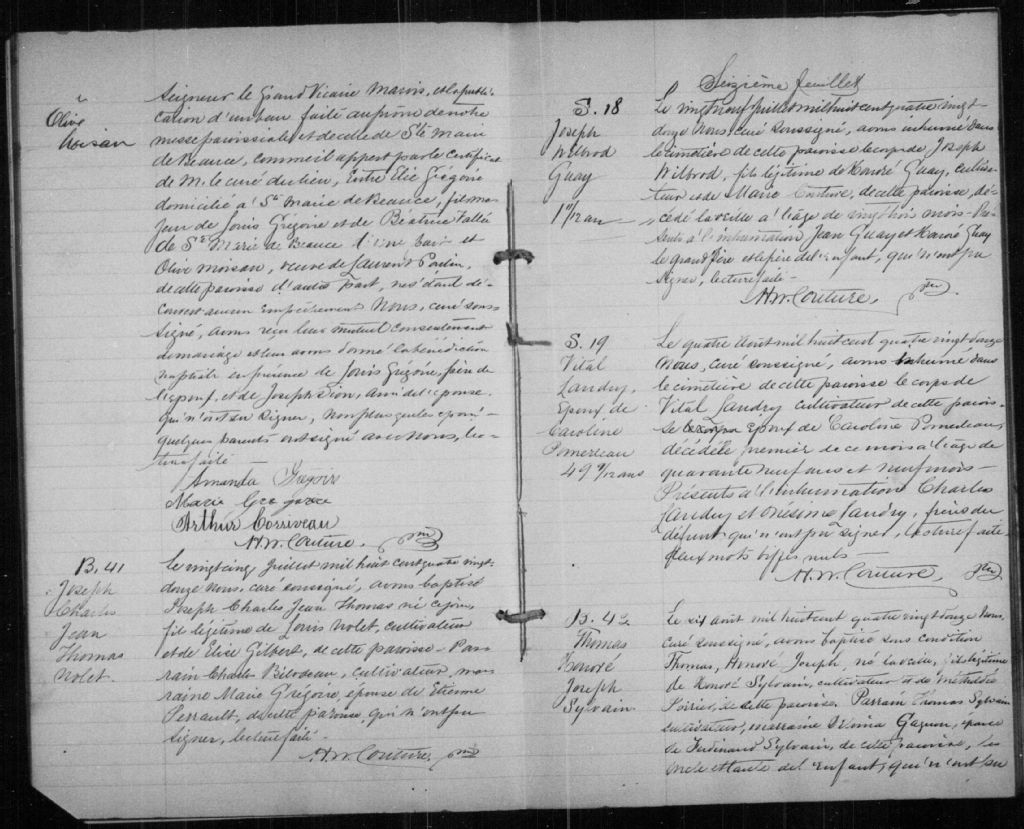 Olive
Moisan
Seigneur le Grand Vicaire Marois, et la publi-
cation d'un ban faite au prône de notre
messe paroissiale et de celle de Ste Marie
de Beauce, comme il appert par le certificat
de M. le curé du lieu, Entre Elie Grégoire
domicilié à Ste Marie de Beauce, fils ma-
jeur de Louis Grégoire et de Béatrice Vallée
de Ste Marie de Beauce d'une part et
Olive Moisan, veuve de Laurent Poulin,
de cette paroisse d'autre part, ne s'étant dé-
couvert aucun empêchement Nous, curé sous-
signé, avons reçu leur mutuel consentement
de mariage et leur avons donné la bénédiction
nuptiale en présence de Louis Grégoire, père de
l'époux, et de Joseph Dion, ami de l'épouse
qui n'ont su signer, non plus que les époux -
quelques parents ont signé avec nous, lec-
ture faite
Amanda
Marie Gregoire
Arthur Corriveau
H.W. Couture, ptre
B. 41
Joseph
Charles
Jean
Thomas
Nolet.
Le vingt cinq juillet mil huit cent quatre vingt-
douze nous, curé soussigné, avons baptisé
Joseph Charles Jean Thomas né ce jour,
fils légitime de Louis Nolet, cultivateur
et de Elise Gilbert, de cette paroisse - Par-
rain Charles Bilodeau, cultivateur, mar-
raine Marie Grégoire, épouse de Etienne
Perrault, de cette paroisse, qui n'ont su
signer, lecture faite -
H.W. Couture, ptre
Seizième feuillet
S. 18
Joseph
Wilbrod
Guay
1 11/12 an
Le vingt neuf juillet mil huit cent quatre vingt
douze nous, curé soussigné, avons inhumé dans
le cimetière de cette paroisse le corps de Joseph
Wilbrod, fils légitime de Honoré Guay, cultiva-
teur et de Marie Couture, de cette paroisse, dé-
cédé la veille à l'âge de vingt trois mois - Pré-
sents à l'inhumation Jean Guay et Honoré Guay
le grand père et le père de l'enfant, qui n'ont pu
signer, lecture faite -
H.W. Couture, ptre.
S. 19
Vital
Landry,
Epoux de
Caroline
Pomerleau
49 9/12 ans
Le quatre août mil huit cent quatre vingt douze
Nous, curé soussigné, avons inhumé dans
le cimetière de cette paroisse le corps de
Vital Landry cultivateur de cette parois-
se époux de Caroline Pomerleau,
décédé le premier de ce mois à l'âge de
quarante neuf ans et neuf mois -
Présents à l'inhumation Charles
Landry et Onésime Landry, frères du
défunt qui n'ont pu signer, lecture faite
deux mots biffés nuls -
H.W. Couture, ptre
B. 42
Thomas
Honoré
Joseph
Sylvain
Le six août mil huit cent quatre vingt douze Nous,
curé soussigné, avons baptisé sous condition
Thomas, Honoré Joseph, né la veille, fils légitime
de Honoré Sylvain, cultivateur et de Mathilde
Poirier, de cette paroisse. Parrain Thomas Sylvain
cultivateur, marraine Gagnon, épouse
de Ferdinand Sylvain, de cette paroisse, les
oncle et tante de l'enfant, qui n'ont su